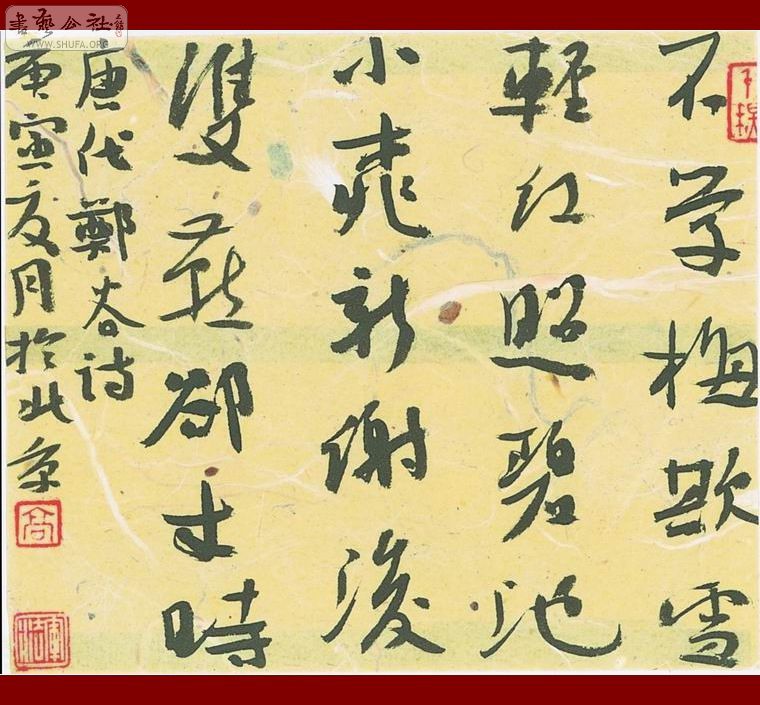 書藝公社
WWW.SHUFA.ORG
不学梅欺雪
輕红照碧池
小桃新谢後
雙燕卻来時
唐代鄭谷诗
庚寅夏月於北京